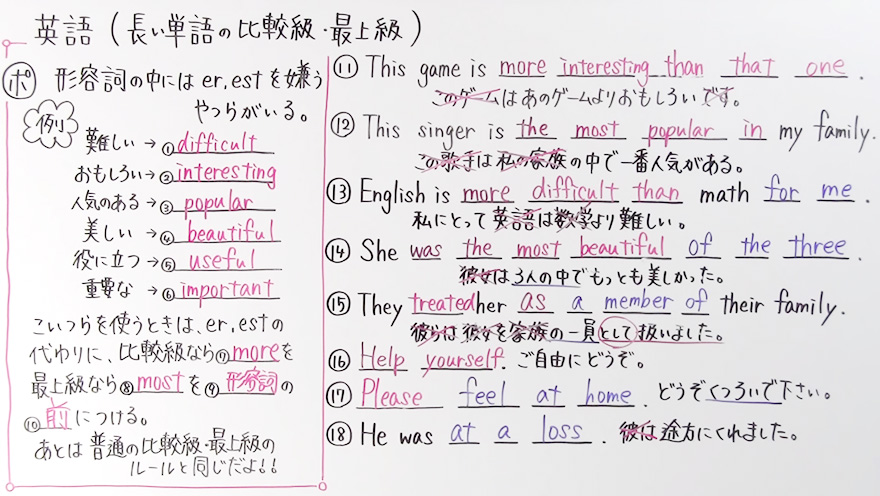 英語(長い単語の比較級・最上級)
ポ 形容詞の中にはer,estを嫌う
やつらがいる。
例
難しい→①difficult
おもしろい→②interesting
人気のある→③popular
美しい→④beautiful
役に立つ→⑤useful
重要な→⑥important
こいつらを使うときは、er,estの
代わりに、比較級なら⑦moreを
最上級なら⑧mostを⑨形容詞の
⑩前につける。
あとは普通の比較級・最上級の
ルールと同じだよ!!
⑪This game is more interesting than that one.
このゲームはあのゲームよりおもしろいです。
⑫This singer is the most popular in my family.
この歌手は私の家族の中で一番人気がある。
⑬English is more difficult than math for me.
私にとって英語は数学より難しい。
⑭She was the most beautiful of the three.
彼女は3人の中でもっとも美しかった。
⑮They treated her as a member of their family.
彼らは彼女を家族の一員として扱いました。
⑯Help yourself. ご自由にどうぞ。
⑰Please feel at home. どうぞくつろいで下さい。
⑱He was at a loss. 彼は途方にくれました。